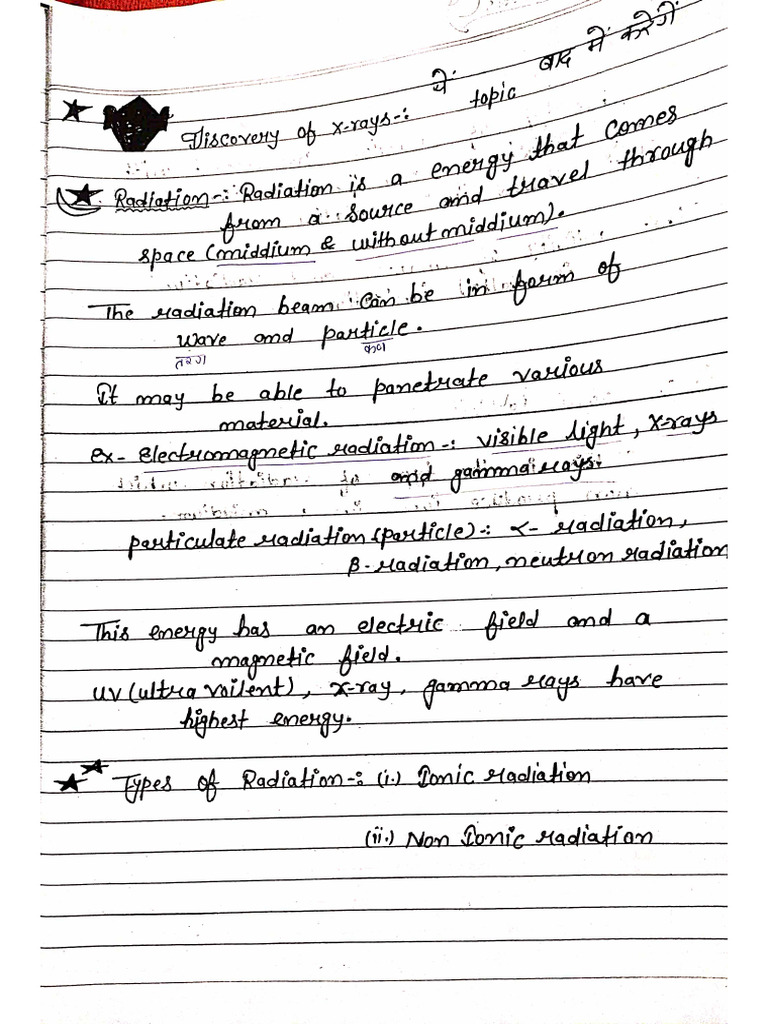 Discovery of x-rays-: ये topic बाद में करेगें
Radiation-: Radiation is a energy that comes
from a source and travel through
space (middium & without middium).
The radiation beam can be in form of
wave and particle.
तरंग कण
It may be able to panetrate various
material.
ex- Electromagnetic radiation-: visible light, x-rays
and gamma rays.
particulate radiation (particle): α- radiation,
β- radiation, neutron radiation
This energy has an electric field and a
magnetic field.
UV (ultra voilent), x-ray, gamma rays have
highest energy.
Types of Radiation-: (i.) Ionic radiation
(ii.) Non Ionic radiation